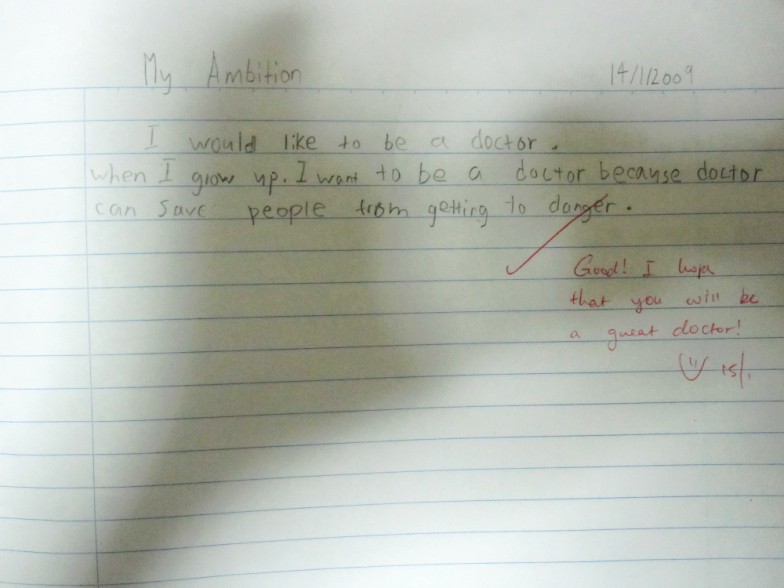 My Ambition 14/1/2009
I would like to be a doctor.
when I grow up. I want to be a doctor because doctor
can save people from getting to danger.
Good! I hope
that you will be
a great doctor!
15/1